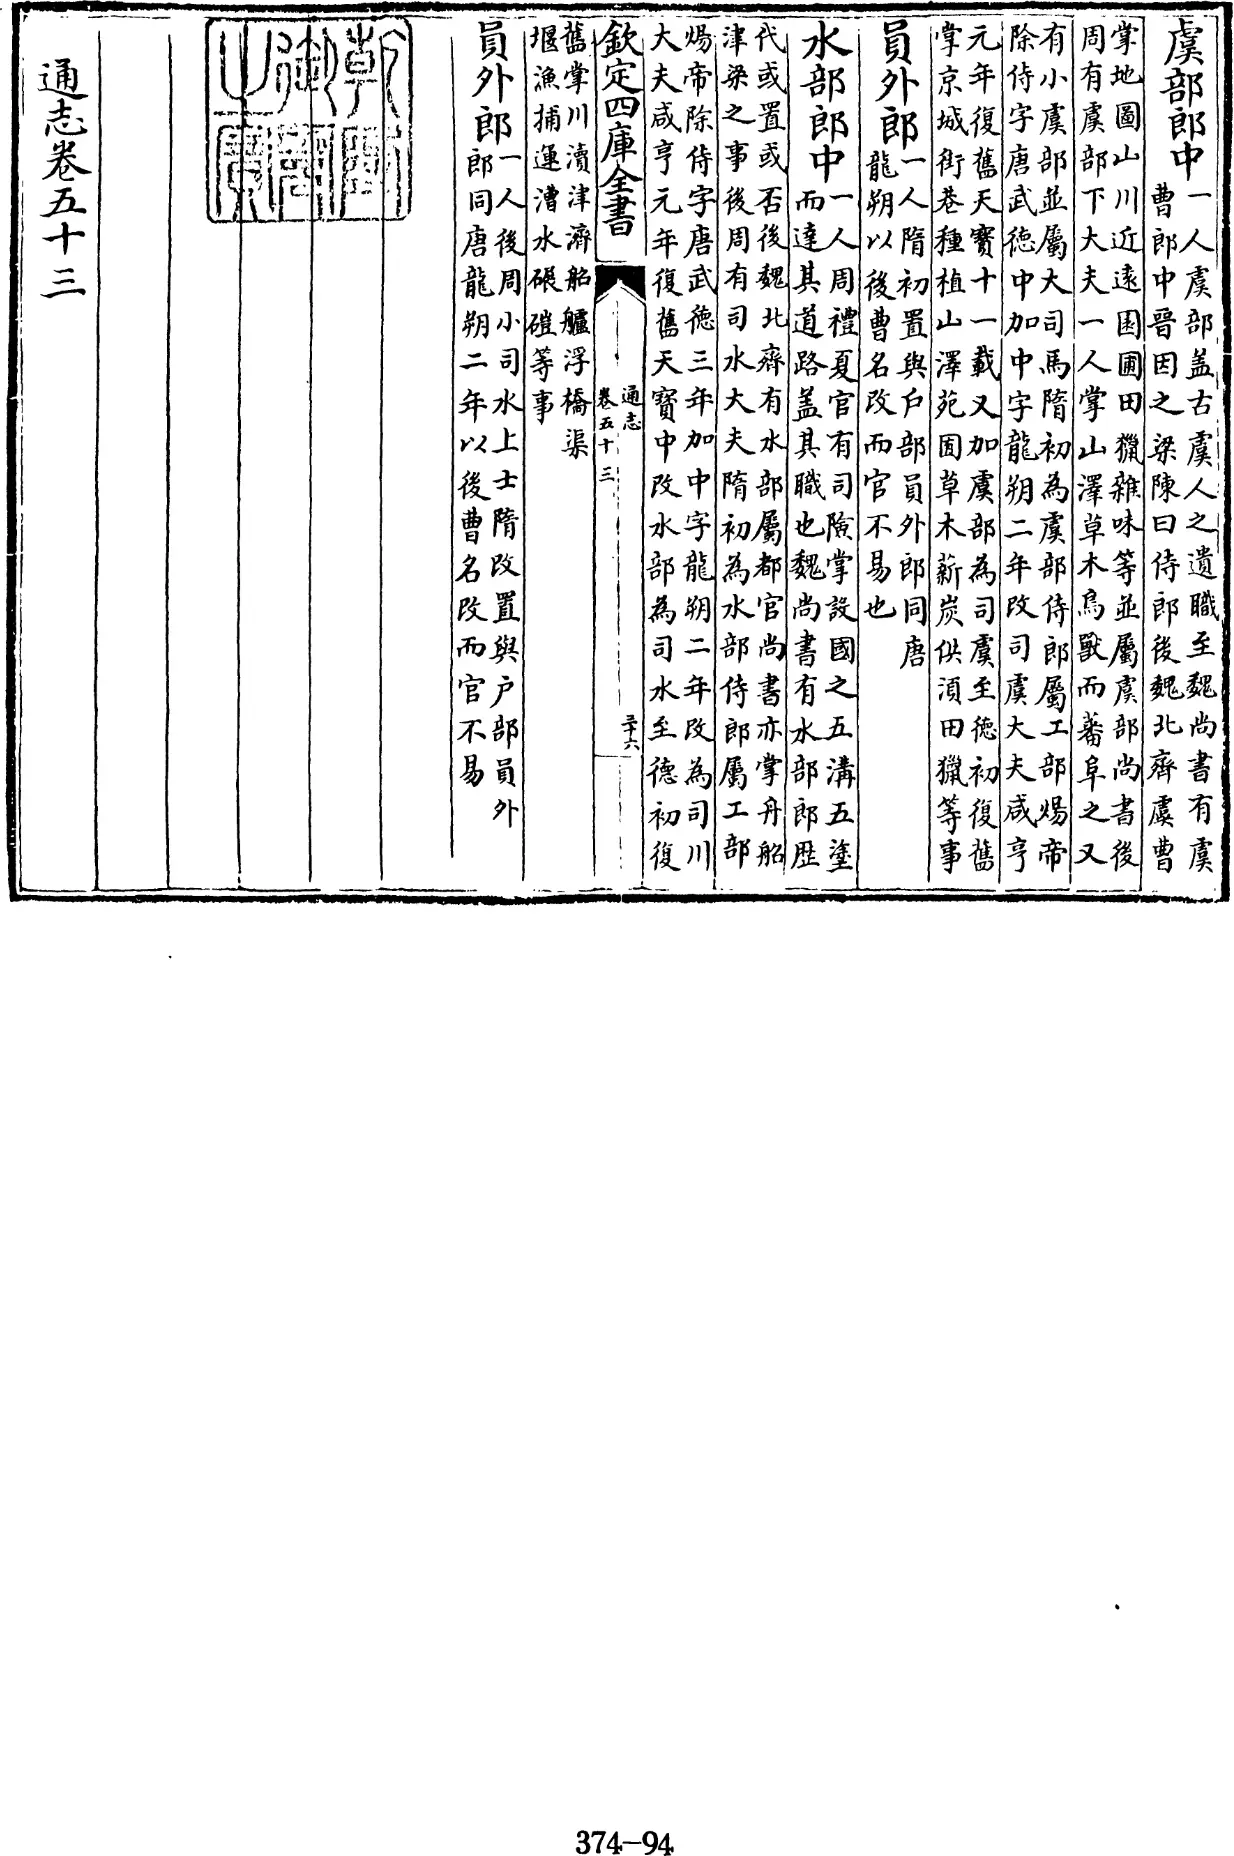 虞部郎中一人虞部盖古虞人之遺職至魏尚書有虞
曹郎中晉因之梁陳曰侍郎後魏北齊虞曹
掌地圖山川近逺園囿田獵雜味等並屬虞部尚書後
周有虞部下大夫一人掌山澤草木鳥獸而蕃阜之又
有小虞部並屬大司馬隋初為虞部侍郎屬工部煬帝
除侍字唐武徳中加中字龍朔二年改司虞大夫咸亨
元年復舊天寳十一載又加虞部為司虞至徳初復舊
掌京城街巷種植山澤苑囿草木薪炭供湏田獵等事
員外郎一人隋初置與户部員外郎同唐
龍朔以後曹名改而官不易也
水部郎中一人周禮夏官有司險掌設國之五溝五塗
而達其道路盖其職也魏尚書有水部郎歴
代或置或否後魏北齊有水部屬都官尚書亦掌舟船
津梁之事後周有司水大夫隋初為水部侍郎屬工部
煬帝除侍字唐武徳三年加中字龍朔二年改為司川
大夫咸亨元年復舊天寳中改水部為司水至徳初復
欽定四庫全書
通志
卷五十三
三十六
舊掌川瀆津濟船艫浮橋渠
堰漁捕運漕水碾磑等事
員外郎一人後周小司水上士隋改置與户部員外
郎同唐龍朔二年以後曹名改而官不易
乾隆御覽之寶
通志卷五十三
374-94